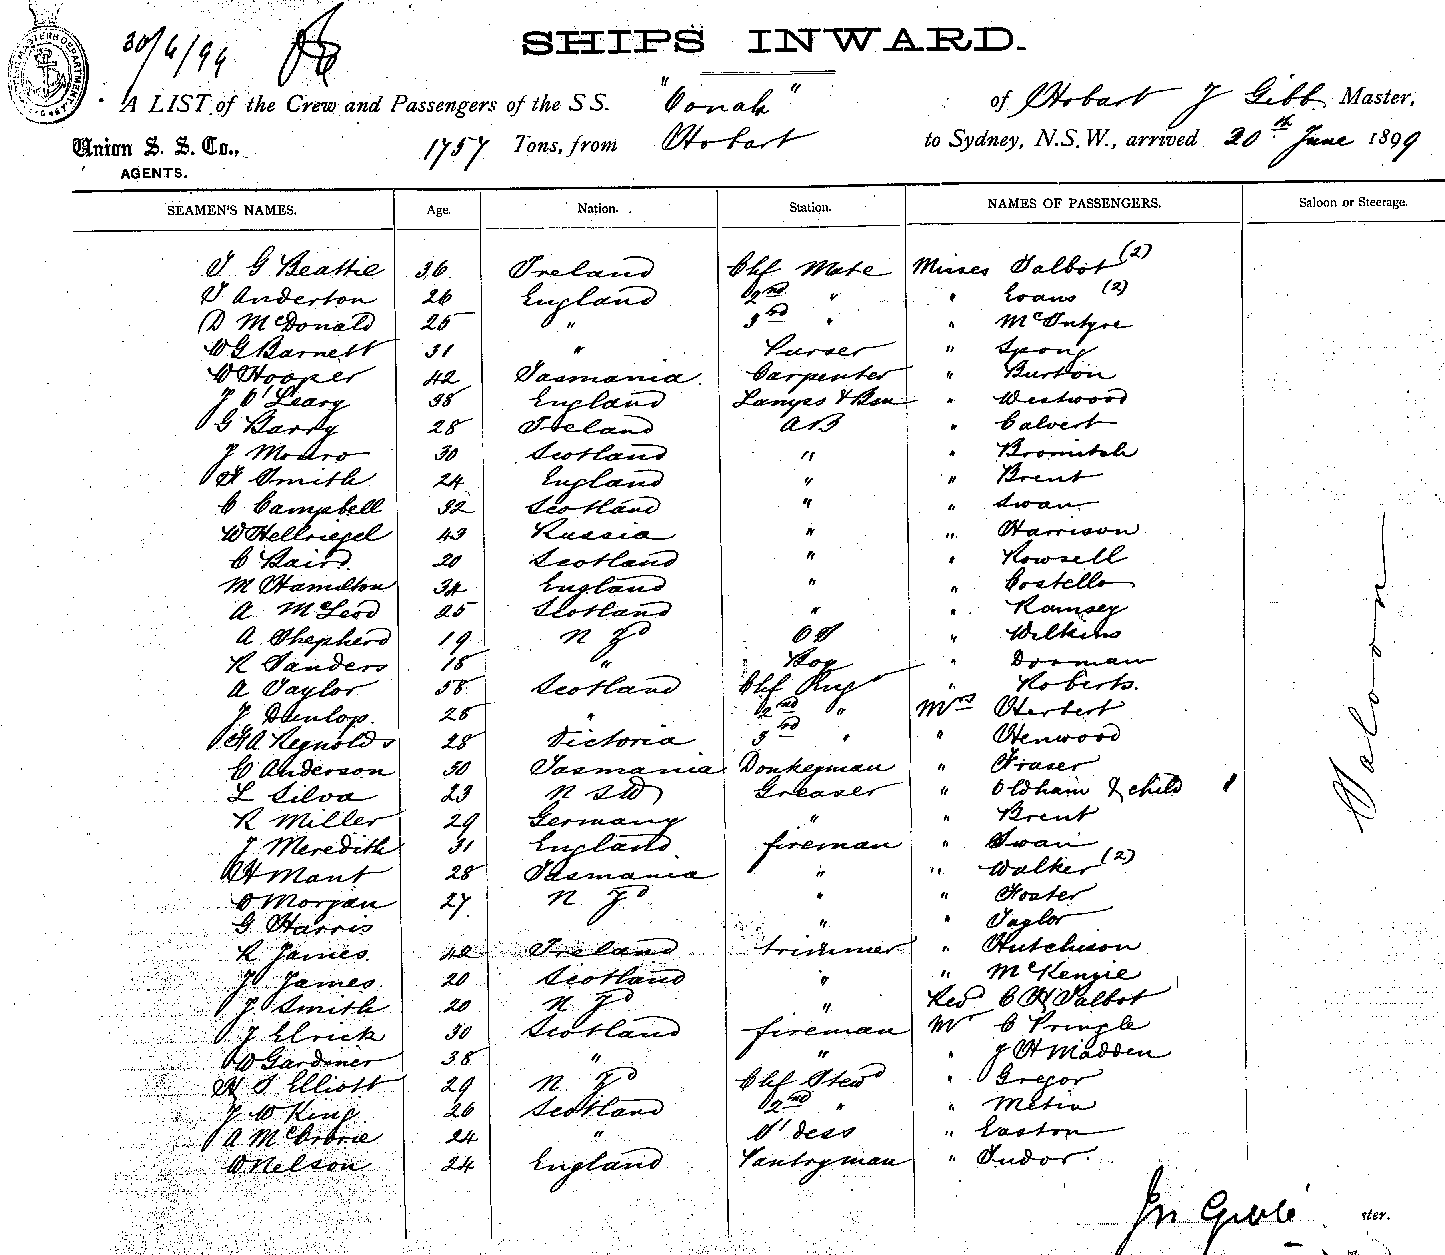 30/6/99
SHIPS INWARD.
A LIST of the Crew and Passengers of the S S. "Oonah" of Hobart J Gibb Master,
Union S. S. Co., 1757 Tons, from Hobart to Sydney, N.S.W., arrived 20th June 1899
AGENTS.
SEAMEN'S NAMES. Age. Nation. Station. NAMES OF PASSENGERS. Saloon or Steerage.
J G Beattie 36 Ireland Chf Mate Misses Talbot (2)
J Anderton 26 England 2nd " " Evans (2)
D McDonald 25 " 3rd " " McIntyre
W G Barnett 31 " Purser " Spong
W Hooper 42 Tasmania Carpenter " Burton
J O'Leary 38 England Lamps & " Westwood
G Barry 28 Ireland AB " Calvert
J Monro 30 Scotland " " Bromitch
F Smith 24 England " " Brent
C Campbell 32 Scotland " " Swan
W Hellriegel 43 Russia " " Harrison
C Baird 20 Scotland " " Rowsell
M Hamilton 34 England " " Costello
A McLeod 25 Scotland " " Ramsey
A Shepherd 19 N Zd OS " Wilkins
R Sanders 18 " Boy " Dorman
A Taylor 58 Scotland Chf Eng " Roberts
J Dunlop 28 " 2nd " Mrs Herbert
H A Reynolds 28 Victoria 3rd " " Henwood
C Anderson 50 Tasmania Donkeyman " Fraser
L Silva 23 N S W Greaser " Oldham & child 1
R Miller 29 Germany " " Brent
J Meredith 31 England fireman " Swan
C H Mant 28 Tasmania " " Walker (2)
O Morgan 27 N Zd " " Foster
G Harris " " Taylor
R James 42 Ireland trimmer " Hutchison
J James 20 Scotland " " McKenzie
J Smith 20 N Zd " Revd C H Talbot
J Elrick 30 Scotland fireman Mr C Pringle
W Gardiner 38 " " " J H Madden
H S Elliott 29 N Zd Chf Stewd " Gregor
J W King 26 Scotland 2nd " " Metin
A McCrorie 24 " S'dess " Easton
W Nelson 24 England Pantryman " Tudor
Saloon
Jn Gibb
ster.